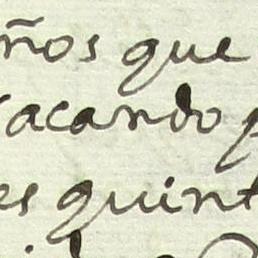 ños que
acando p
es quint